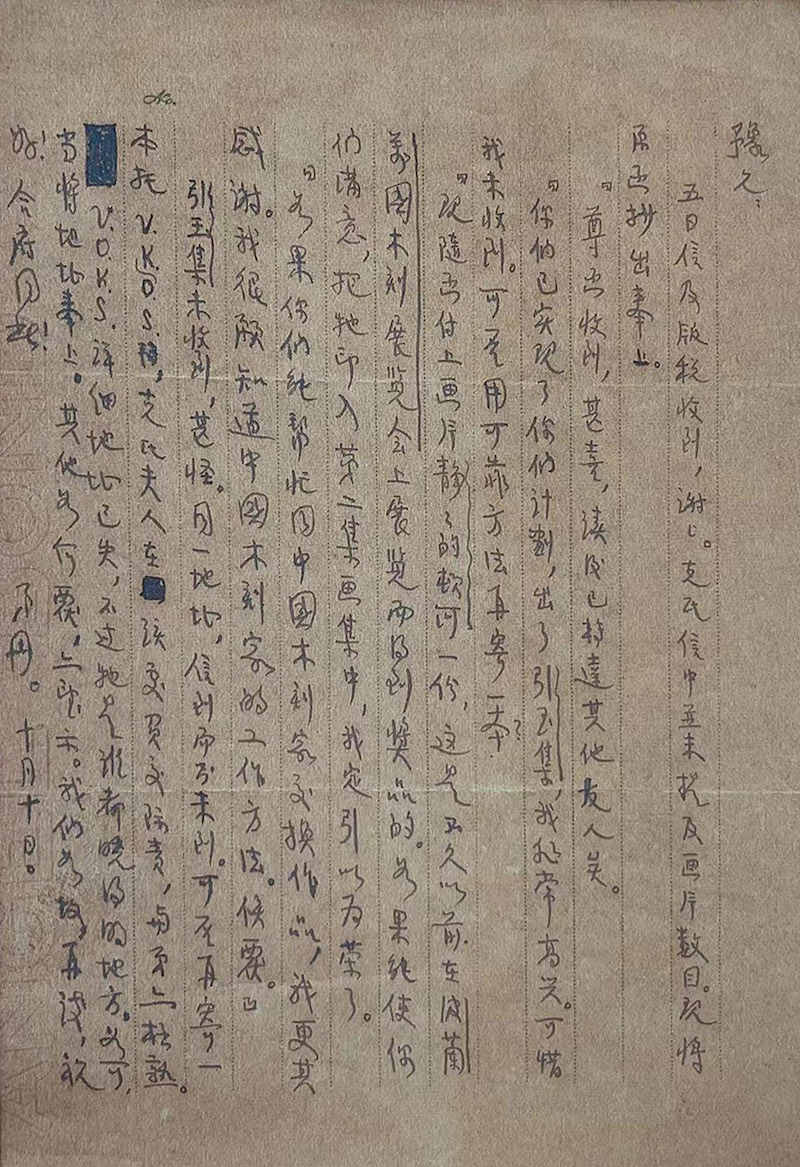 豫兄：
五日信及版税收到，谢ヒ。克氏信中並未提及画片数目。现将
原函抄出奉上。
『尊函收到，甚幸，读后已转達其他友人矣。
『你们已实现了你们计劃，出了引玉集，我非常高兴。可惜
我未收到。可否用可靠方法再寄一本？
『现随函付上画片静ヒ的顿河一份，这是不久以前在波蘭
義國木刻展览会上展览而得到獎品的。如果能使你
们满意，把牠印入第二集画集中，我定引以为荣了。
『如果你们能帮忙同中國木刻家交换作品，我更其
感谢。我很願知道中國木刻家的工作方法。候覆。』
引玉集未收到，甚怪。同一地址，信到而书未到。可否再寄一
本托 V.K.O.S.转，克氏夫人在 该处负责，与弟亦极熟。
V.O.K.S.详细地址已失，不过牠是谁都晓得的地方。如可，
当将地址奉上。其他如何覆，亦即示。我们如故，再谈，祝
好！令府同此！
弟 冊。十月十日。
No.